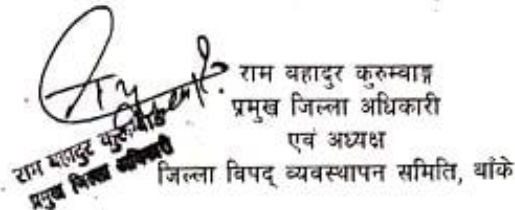 राम बहादुर कुरुम्बाङ्ग
प्रमुख जिल्ला अधिकारी
एवं अध्यक्ष
जिल्ला विपद् व्यवस्थापन समिति, बाँके
राम बहादुर कुरुम्बाङ
प्रमुख जिल्ला अधिकारी